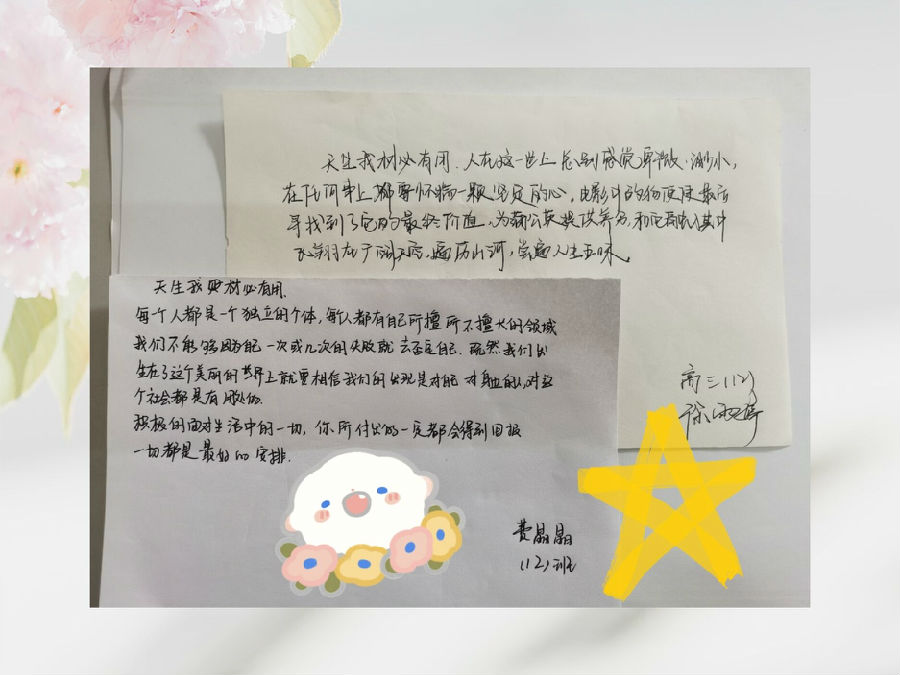 天生我材必有用、人在这一世上总到感觉卑微、渺小，
在任何事上都要怀揣一颗坚定的心，
寻找到了它的最终价值，为蒲公英提供养分，
飞翔在广阔天空，遍历山河，尝遍人生五味。
高三(12)
徐
天生我材必有用、
每个人都是一个独立的个体，每人都有自己所擅所不擅长的领域
我们不能够因为自己一次或几次的失败就去否定自己、既然我们出
生在了这个美丽的世界上就要相信我们的出现是对自己对身边的人对这
个社会都是有用的、
积极的面对生活中的一切，你所付出的一定都会得到回报
一切都是最好的安排、
费晶晶
(12)班